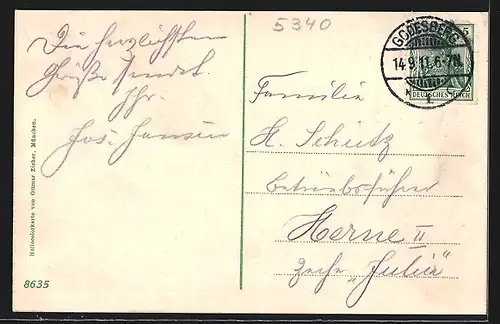 5340
GODESBERG
14.9.11.6-7N.
1
DEUTSCHES REICH
Die herzlichsten
Grüße sendet
Ihr
Jos. Jansen
Familie
H. Schütz
Betriebsführer
Herne II
Zeche „Julia"
Heliocolorkarte von Ottmar Zieher, München.
8635